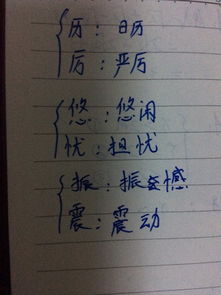 历：日历
厉：严厉
悠：悠闲
忧：担忧
振：振憾
震：震动